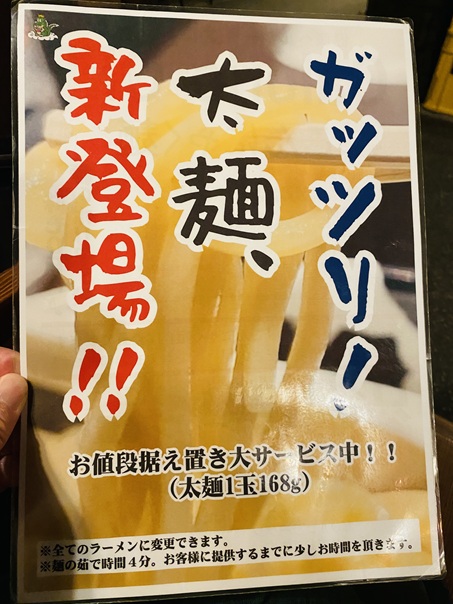 ガッツリ！
太麺、
新登場！！
お値段据え置き大サービス中！！
（太麺1玉168g）
※全てのラーメンに変更できます。
※麺の茹で時間４分。お客様に提供するまでに少しお時間を頂きます。